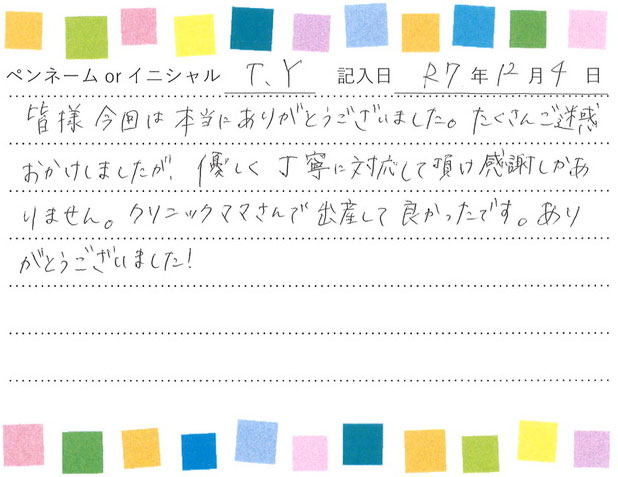 ペンネーム or イニシャル T.Y 記入日 R7 年 12 月 4 日
皆様 今回は 本当に ありがとうございました。たくさんご迷惑
おかけしましたが、優しく 丁寧に対応して頂け 感謝しかあ
りません。クリニックママさんで 出産して 良かったです。あり
がとうございました!